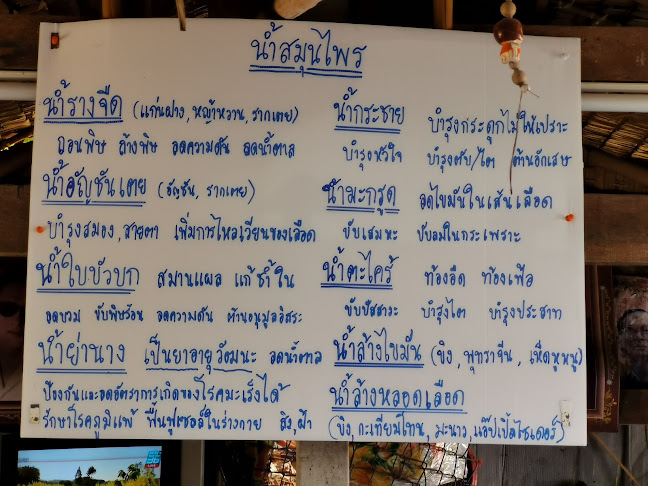 น้ำสมุนไพร
น้ำรางจืด (แก่นฝาง, หญ้าหวาน, รากเตย)
ถอนพิษ ล้างพิษ ลดความดัน ลดน้ำตาล
น้ำอัญชันเตย (อัญชัน, รากเตย)
บำรุงสมอง, สายตา เพิ่มการไหลเวียนของเลือด
น้ำใบบัวบก สมานแผล แก้ช้ำใน
ลดบวม ขับพิษร้อน ลดความดัน ต้านอนุมูลอิสระ
น้ำย่านาง เป็นยาอายุวัฒนะ ลดน้ำตาล
ป้องกันและลดอัตราการเกิดของโรคมะเร็งได้
รักษาโรคภูมิแพ้ ฟื้นฟูเซลล์ในร่างกาย สิว, ฝ้า
น้ำกระชาย บำรุงกระดูกไม่ให้เปราะ
บำรุงหัวใจ บำรุงตับ/ไต ต้านอักเสบ
น้ำมะกรูด ลดไขมันในเส้นเลือด
ขับเสมหะ ขับลมในกระเพราะ
น้ำตะไคร้ ท้องอืด ท้องเฟ้อ
ขับปัสสาวะ บำรุงไต บำรุงประสาท
น้ำล้างไขมัน (ขิง, พุทราจีน, เห็ดหูหนู)
น้ำล้างหลอดเลือด
(ขิง, กระเทียมโทน, มะนาว, แอ๊ปเปิ้ลไซเดอร์)